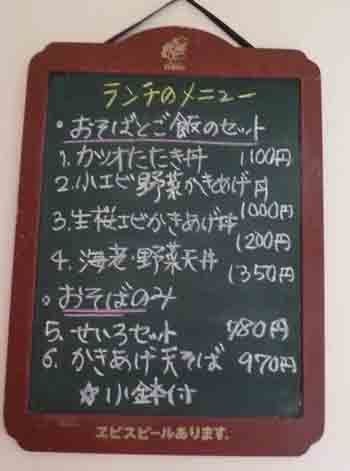 ランチのメニュー
・おそばとご飯のセット
1. カツオたたき丼 1100円
2. 小エビ野菜かきあげ丼 1000円
3. 生桜エビかきあげ丼 1200円
4. 海老・野菜天丼 1350円
・おそばのみ
5. せいろセット 780円
6. かきあげ天そば 970円
☆小鉢付
ヱビスビールあります。